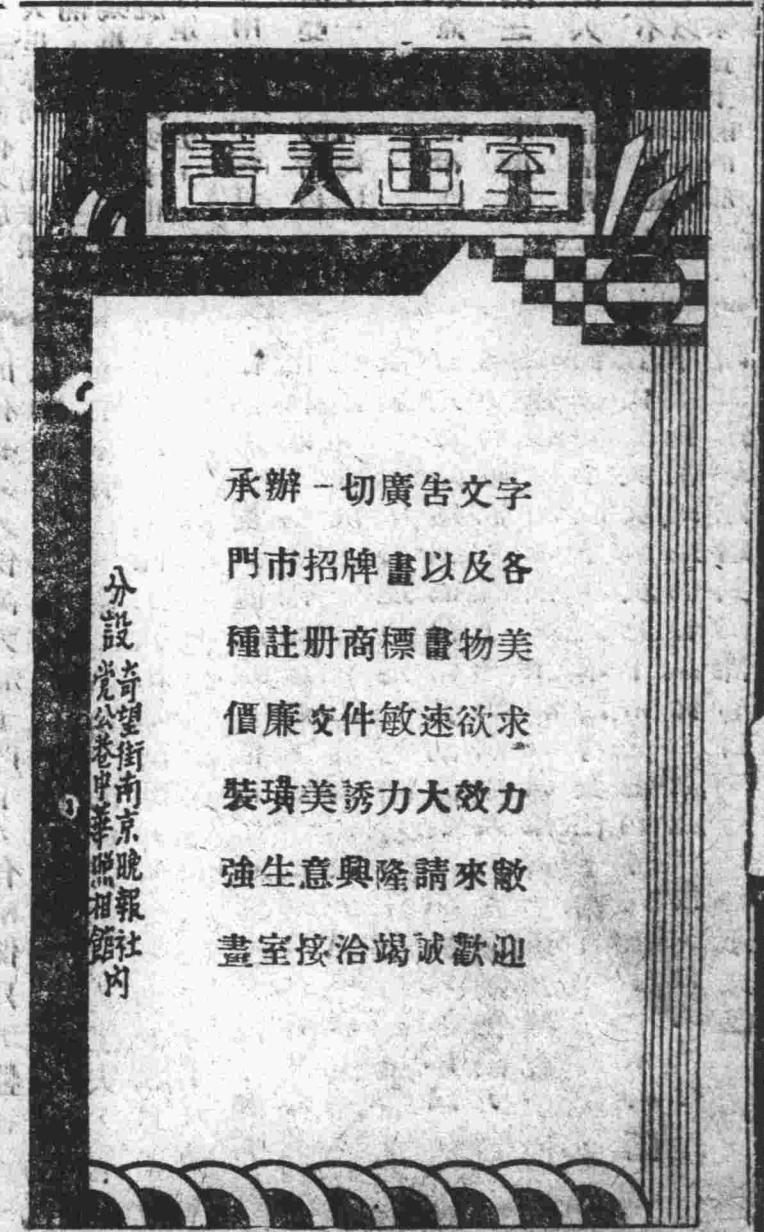 善美画室
承辦一切廣告文字
門市招牌畫以及各
種註册商標畫物美
價廉交件敏速欲求
裝璜美誘力大效力
強生意興隆請來敝
畫室接洽竭誠歡迎
分設
奇望街南京晚報社
党公巷中華照相館
內